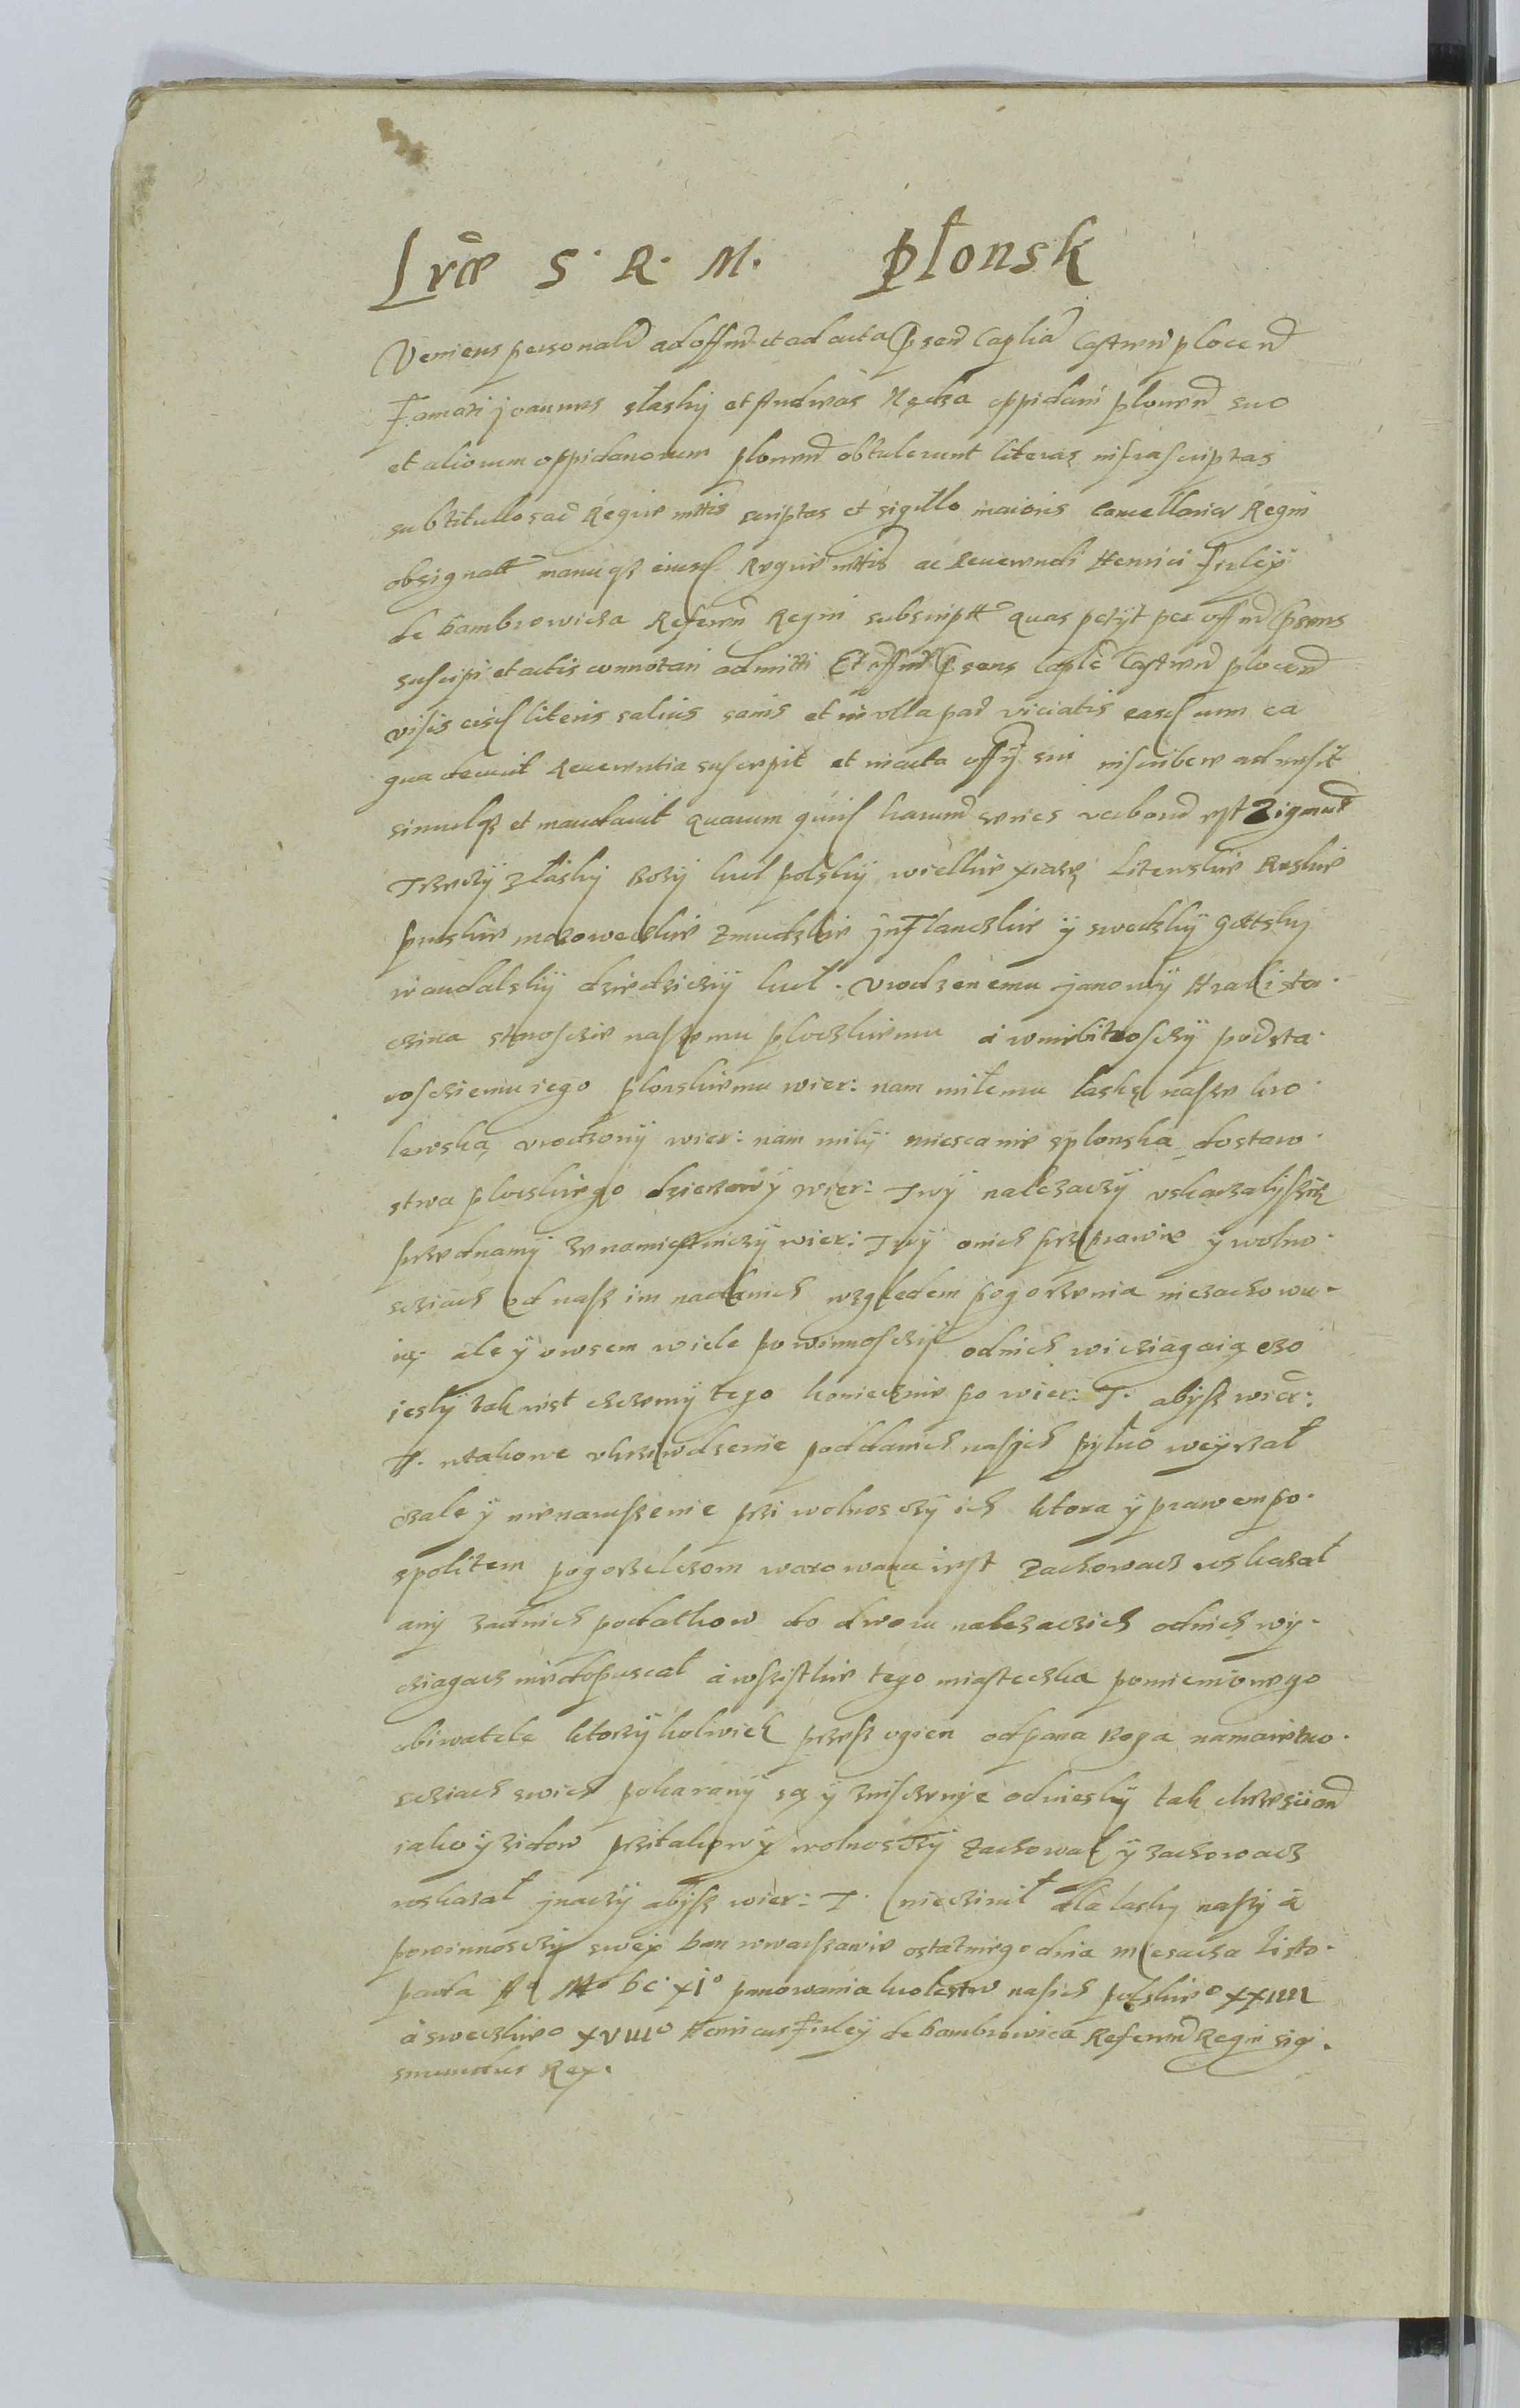 Lrae S. R. M. Płonsk
Veniens personalr ad offm et ad acta psen Caplia Castren plocen
Famati Joannes slasky et Andreas Nędza oppidani plonen suo
et aliorum oppidanorum plonen obtulerunt literas infrascriptas
sub titullo sac Regiae mttis scriptas et sigillo maioris Cancellariae Regni
obsignatt manuqз eiusd Regiae mttis ac Reuerendi Henrici Firley
de Dambrowicza Referen Regni subscriptt quas petyt per offm psens
suscipi et actis connotari admitti Et offm psens Caple Castren plocen
visis eisd literis saluis sanis et in vlla par viciatis easd cum ea
qua decuit Reuerentia suscepit et in acta offy sui inscribere admisit
simulqз et mandauit quarum quid harum series verborum est Zigmut
Trzeczy z łasky Bozy krol polsky wielkie xiaze Litewskie Ruskie
pruskie mazoweczkie zmudzkie Jnflanczkie y swedzky gottsky
wandalsky dziedziczny krol. Vrodzenemu Janowy Kralista.
czina starosczie naszemu ploczkiemu a w niebitnosczy podsta.
rosciemu iego plonskiemu wier: nam miłemu łaskę nasze kro.
lewską vrodzony wier: nam miły miesczanie z plonska do staro.
stwa ploczkiego dzierzawy wier: Twy nalezaczy vskarzaly sie
przed namy ze namiestniczy wier: Twy onich prz prawie y wolno.
scziach od nasz im nadanich względem pogorzenia nie zachowu-
ią ale y owsem wiele powinnosczy odnich wicziagaią czo
iesly tak iest chczemy tego koniecznie po wier: T. abysz wier:
T. w takowe vkrziwdzenie poddanich naszich pylno weyrzał
czale y nienaruszenie przi wolnosczy ich ktora y prawem po.
spolitem pogorzelczom warowana iest zachowacz roskazał
any zadnich podatkow do dworu nalezaczich odnich wy-
cziagacz nie dopusczał a wszistkie tego miasteczka pomienionego
obiwatele ktorzykolwiek przesz ogien od pana Boga na maietno.
scziach swich pokarany są y znisczenye odniesly tak chrzescian
iako y zidow przi takowy wolnosczy zachował y zachowacz
roskazał ynaczy abysz wier: T. nie czinił dla łasky naszy a
powinnosczy swey Dan w warszawie ostatniego dnia miesiacza Listo.
pada R. Mo DC XIo panowania krolestw naszich polskieo XXIIII
a sweczkieo XVIIIo Henricus Firley de Dambrowica Referen Regni sigi.
smundus Rex.